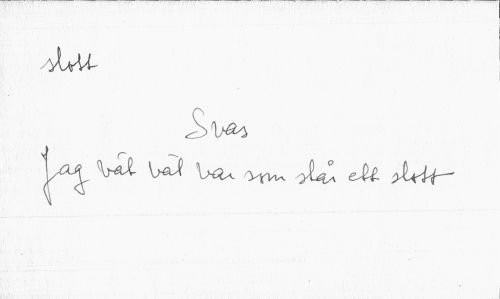 slott
Svas
Jag vät väl var som står ett slott